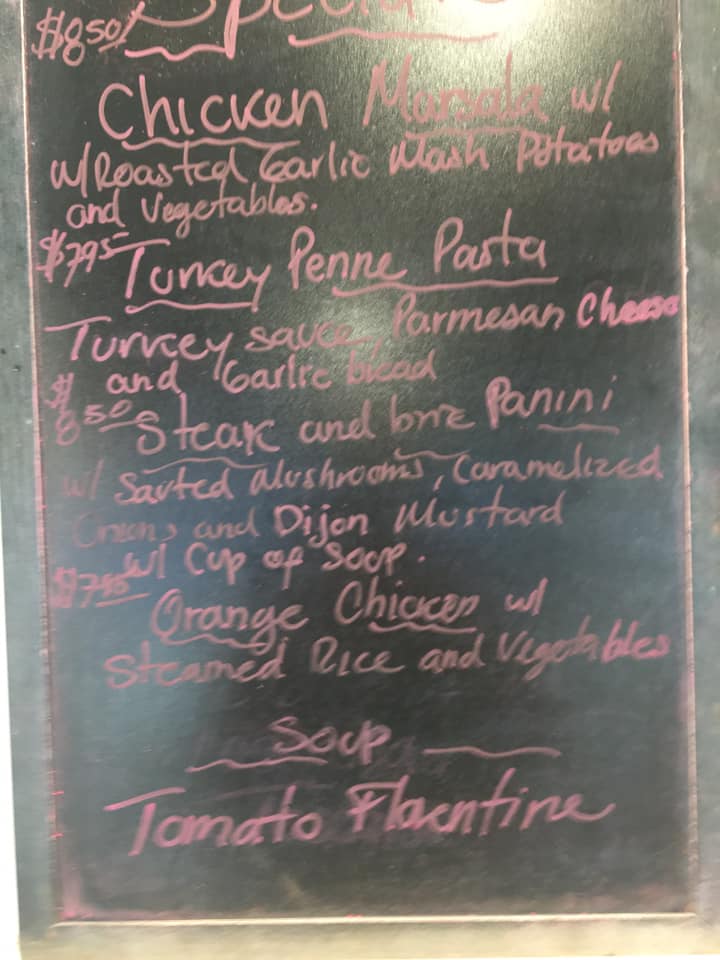 Specials
$8.50
Chicken Marsala w/
w/Roasted Garlic Mash Potatoes
and Vegetables.
$7.95 Turkey Penne Pasta
Turkey sauce, Parmesan Cheese
and Garlic bread
$8.50 Steak and brie Panini
w/ Sauted Mushrooms, Caramelized
Onions and Dijon Mustard
w/ Cup of Soup.
$7.95 Orange Chicken w/
Steamed Rice and Vegetables
Soup
Tomato Florentine